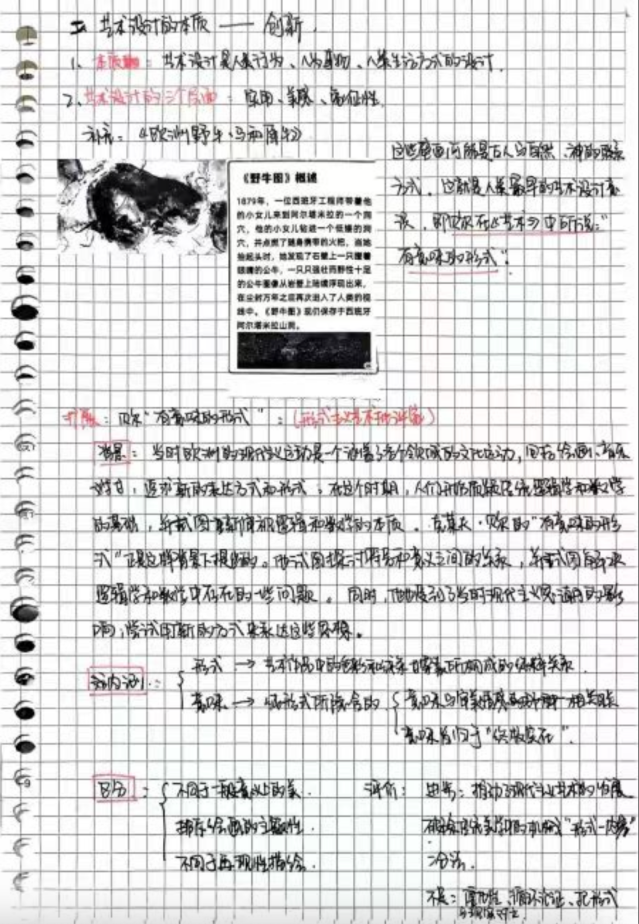 艺术设计的本质 —— 创新
1、本质: 艺术设计是人类行为、人为事物、人类生活方式的设计.
2、艺术设计的三个层面: 实用、美感、象征性.
补充: 《欧洲野牛、马和犀牛》
这些壁画可能是古人与自然、神的联系
方式, 这就是人类最早的艺术设计意
识, 即贝尔在《艺术》中所说:"
有意味的形式".
《野牛图》概述
1879年,一位西班牙工程师带着他
的小女儿来到阿尔塔米拉的一个洞
穴,他的小女儿钻进一个低矮的洞
穴,并点燃了随身携带的火把,当她
抬起头时,她发现了石壁上一只瞪着
眼睛的公牛,一只只强壮而野性十足
的公牛图像从岩壁上陆续浮现出来,
在尘封万年之后再次进入了人类的视
线中。《野牛图》现们保存于西班牙
阿尔塔米拉山洞。
扩展: 贝尔"有意味的形式":
背景: 当时欧洲的现代主义运动是一个涵盖了各个领域的文化运动, 包括绘画、音乐
追求新的表达方式和形式; 在这个时期, 人们开始质疑传统逻辑学和数学
的基础, 并试图重新审视逻辑和数学的本质. 克莱夫·贝尔的"有意味的形
式"正是这种背景下提出的。他试图探讨符号和意义之间的关系, 并试图解决
逻辑学和数学中存在的一些问题. 同时, 他也受到了当时现代主义思潮的影
响, 尝试用新的方式来表达这些思想.
形式 → 艺术作品中的色彩和线条
意味 → 纯形式所隐含的
意味归于"终极实在".
区分: 不同于一般意义上的美.
排斥绘画的主题性
不同于再现性描绘.
评价: 进步: 推动了现代主义艺术的发展
"形式-内容"
二分法.
不足: 循环论证、把形式